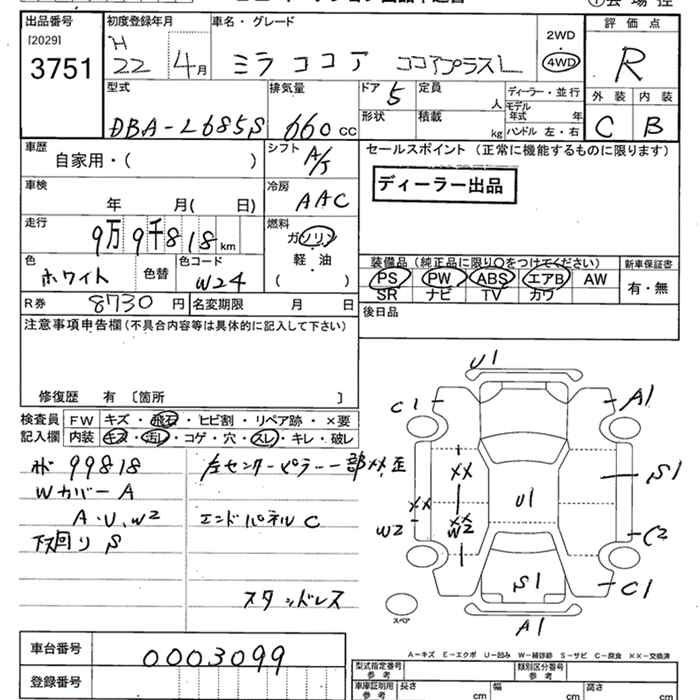 出品番号
[2029]
3751
初度登録年月
H
22 4月
車名・グレード
ミラココア ココアプラスL
2WD
4WD
評価点
R
外装 内装
C B
型式
DBA-L685S
排気量
660 cc
ドア 5
定員
人
形状
積載
kg
ディーラー・並行
モデル年式 年
ハンドル 左・右
車歴
自家用・( )
シフト A/T
車検
年 月( 日)
冷房
AAC
走行
9万9千818 km
燃料
ガソリン
軽・油
( )
色
ホワイト
色替
色コード
W24
R券 8730円
名変期限 月 日
セールスポイント (正常に機能するものに限ります)
ディーラー出品
装備品 (純正品に限り○をつけてください)
PS PW ABS エアB AW
SR ナビ TV カワ
新車保証書
有・無
後日品
注意事項申告欄 (不具合内容等は具体的に記入して下さい)
修復歴 有 〔箇所 〕
検査員
記入欄
FW キズ・飛石・ヒビ割・リペア跡・×要
内装 キズ・汚レ・コゲ・穴・スレ・キレ・破レ
99818
WカバーA
A・U、W2
下回りS
左センターピラー一部××歪
エンドパネルC
スタッドレス
U1
C1
A1
S1
××
××
U1
××
W2
W2
C2
S1
C1
A1
スペア
A-キズ E-エクボ U-凹み W-補修跡 S-サビ C-腐食 ××-交換済
車台番号
0003099
登録番号
型式指定番号
参考
類別区分番号
参考
車庫証明用
参考
長さ cm
幅 cm
高さ cm